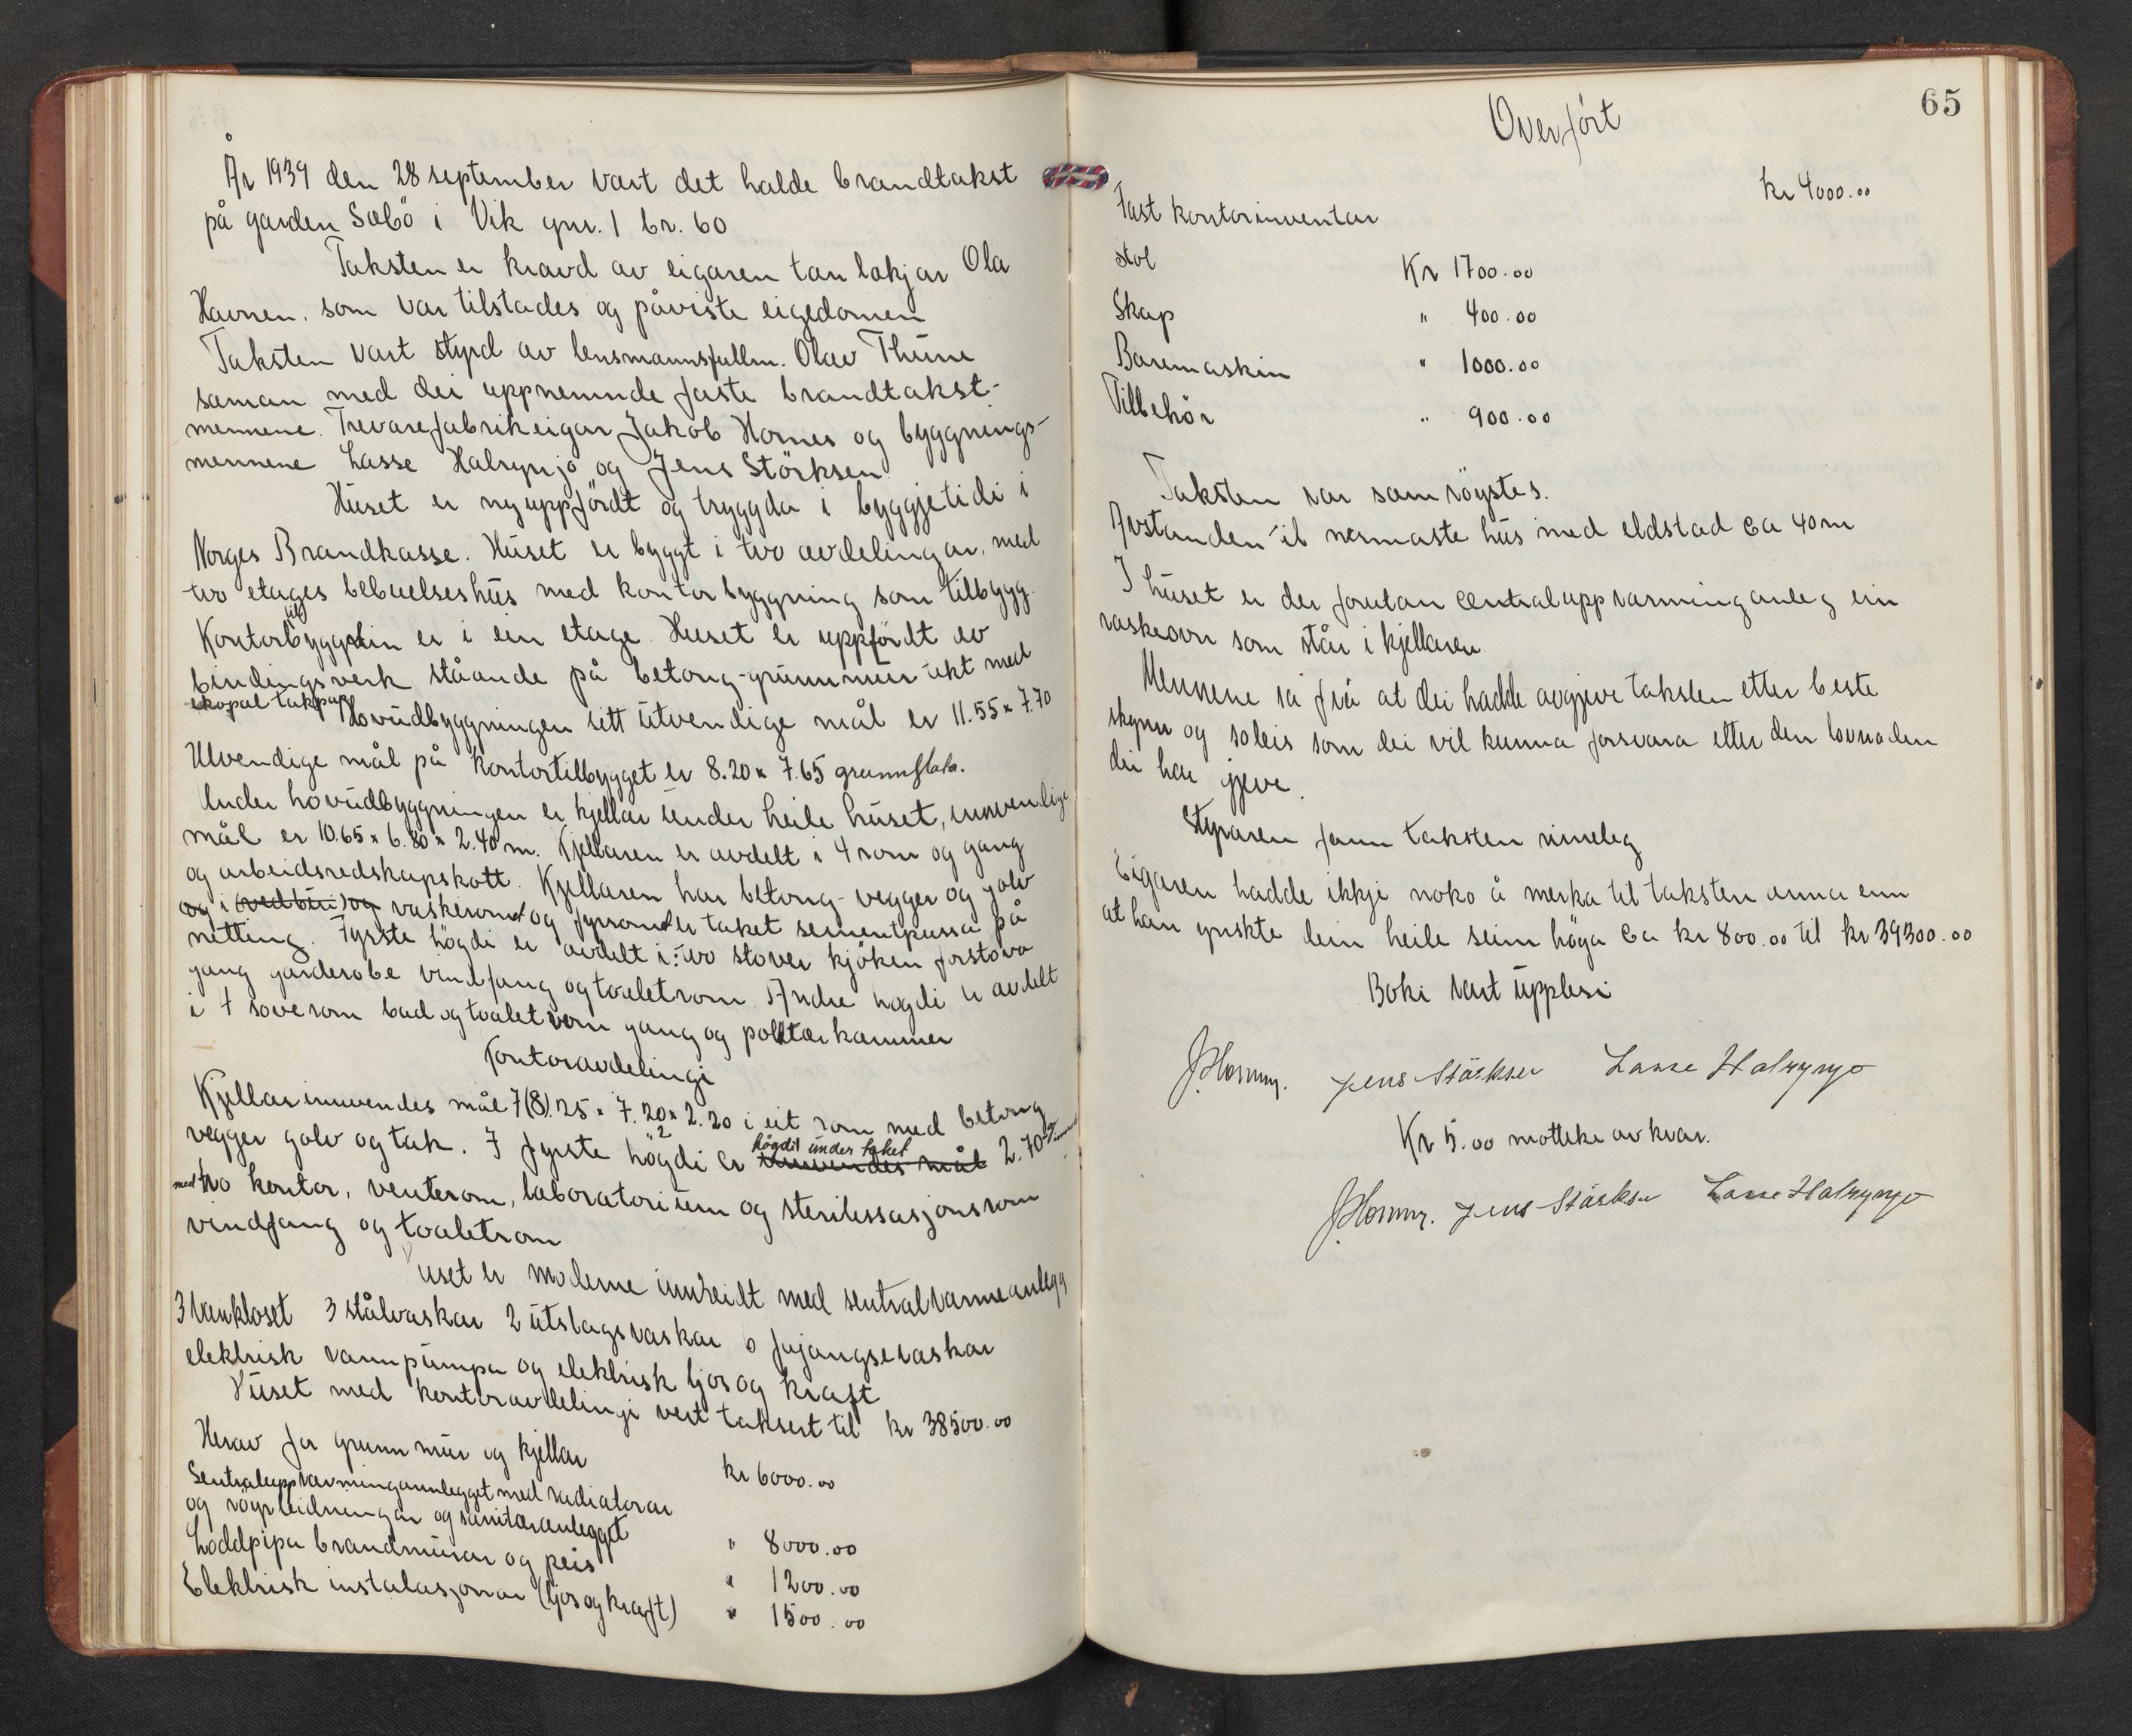 År 1939 den 28 september vart det halde brandtakst
på garden Sæbö i Vik gnr. 1 br. 60
Taksten er kravd av eigaren tan lækjar Ola
Havnen. som var tilstades og påviste eigedomen
Taksten vart styrd av lensmannsfullm. Olav Thune
saman med dei uppnemnde faste brandtakst-
mennene. Trevarefabrikeigar Jakob Hornes og byggnings-
mennene Lasse Halrynjo og Jens Störksen
Huset er nyuppfördt og tryggda i byggjetidi i
Norges Brandkasse. Huset er byggt i two avdelingar, med
two etages bebuelseshus med kontorbyggning som tilbygg.
Kontortilbyggdin er i ein etage. Huset er uppfördt av
bindingsverk ståande på betong-grunnmur tekt med
ekopal takpap. Hovudbyggningen sitt utvendige mål er 11.55 x 7.70
Utvendige mål på kontortilbygget er 8.20 x 7.65 grunnflata.
Under hovudbyggningen er kjellar under heile huset, innvendige
mål er 10.65 x 6.80 x 2.40 m. Kjellaren er avdelt i 4 rom og gang
og arbeidsredskapskott. Kjellaren har betong-vegger og golv
og i (vedbu) og vaskerom og fyrrom er taket sementpussa på
netting. Fyrste högdi er avdelt i: two stover kjöken forstova
gang garderobe vindfang og toaletrom. Andre högdi er avdelt
i 4 soverom bad og toaletrom gang og polktærkammer
Kontoravdelingi
Kjellar innvendes mål 7(8).25 x 7.20 x 2.20 i eit rom med betong
vegger golv og tak. I fyrste högdi er innvendes mål högdi under taket 2.70
med two kontor, venterom, laboratorium og sterilessasjonsrom
vindfang og toaletrom
Huset er moderne innreidt med sentralvarmeanlegg
3 vankloset 3 stålvaskar 2 utslagsvaskar 6 fajangsevaskar
elektrisk vannpumpa og elektrisk ljos og kraft
Huset med kontoravdelingi vert taksert til kr 38500.00
Herav for grunnmur og kjellar kr 6000.00
Sentraluppvarminganlegget med radiatorar
og röyrleidningar og sanitæranlegget " 8000.00
Loddpipa brandmurar og peis " 1200.00
Elektrisk instalasjonar (ljos og kraft) " 1500.00
65
Overfört
kr 4000.00
Fast kontorinventar
stol Kr 1700.00
Skap " 400.00
Boremaskin " 1000.00
Tilbehör " 900.00
Taksten var samröystes.
Avstanden til nærmaste hus med eldstad ca 40m
I huset er der forutan centraluppvarminganleg ein
vaskeovn som står i kjellaren
Mennene sa frå at dei hadde avgjeve taksten etter beste
skynn og soleis som dei vil kunna forsvara etter den lovnaden
dei har gjeve.
Styraren fann taksten rimeleg
Eigaren hadde ikkje noko å merka til taksten anna enn
at han ynskte den heile seim höga ca kr 800.00 til kr 39300.00
Boki vart upplesi
J. Hornes. Jens Störksen Lasse Halrynjo
Kr 5.00 motteke av kvar.
J. Hornes. Jens Störksen Lasse Halrynjo